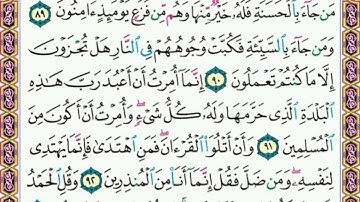 مَن جَآءَ بِٱلْحَسَنَةِ فَلَهُۥ خَيْرٌ مِّنْهَا وَهُم مِّن فَزَعٍ يَوْمَئِذٍ ءَامِنُونَ ٨٩
وَمَن جَآءَ بِٱلسَّيِّئَةِ فَكُبَّتْ وُجُوهُهُمْ فِى ٱلنَّارِ هَلْ تُجْزَوْنَ
إِلَّا مَا كُنتُمْ تَعْمَلُونَ ٩٠ إِنَّمَآ أُمِرْتُ أَنْ أَعْبُدَ رَبَّ هَٰذِهِ
ٱلْبَلْدَةِ ٱلَّذِى حَرَّمَهَا وَلَهُۥ كُلُّ شَىْءٍ ۖ وَأُمِرْتُ أَنْ أَكُونَ مِنَ
ٱلْمُسْلِمِينَ ٩١ وَأَنْ أَتْلُوَا۟ ٱلْقُرْءَانَ ۖ فَمَنِ ٱهْتَدَىٰ فَإِنَّمَا يَهْتَدِى
لِنَفْسِهِۦ ۖ وَمَن ضَلَّ فَقُلْ إِنَّمَآ أَنَا۠ مِنَ ٱلْمُنذِرِينَ ٩٢ وَقُلِ ٱلْحَمْدُ